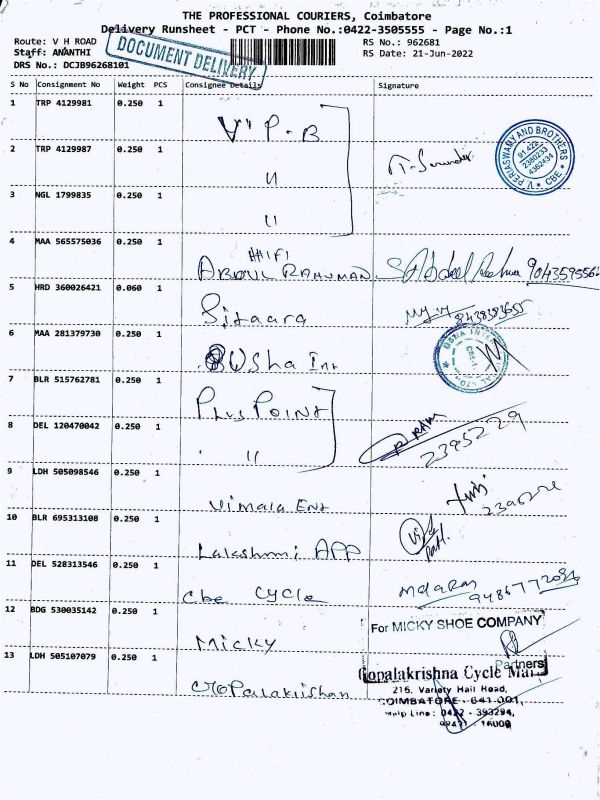 THE PROFESSIONAL COURIERS, Coimbatore
Delivery Runsheet - PCT - Phone No.:0422-3505555 - Page No.:1
Route: V H ROAD
RS No.: 962681
Staff: ANANTHI
RS Date: 21-Jun-2022
DRS No.: DCJB96268101
DOCUMENT DELIVERY
S No Consignment No Weight PCS Consignee Details Signature
1 TRP 4129981 0.250 1 V.P.B
2 TRP 4129987 0.250 1 "
V. PERIASWAMY AND BROTHERS
CBE
3 NGL 1799835 0.250 1 "
4 MAA 565575036 0.250 1 HIFI
ABDUL RAHUMAN
5 HRD 360026421 0.060 1 Sitaara
6 MAA 281379730 0.250 1 Usha Int
7 BLR 515762781 0.250 1 Plus Point
8 DEL 120470042 0.250 1 " RAM 2395229
9 LDH 505098546 0.250 1 Vimala Ent
10 BLR 695313108 0.250 1 Lakshmi APP
11 DEL 528313546 0.250 1 Cbe Cycle
12 BDG 530035142 0.250 1 Micky
For MICKY SHOE COMPANY
Partners
13 LDH 505107079 0.250 1 Gopalakrishan
Gopalakrishna Cycle Mart
216, Variety Hall Road,
COIMBATORE - 641 001.